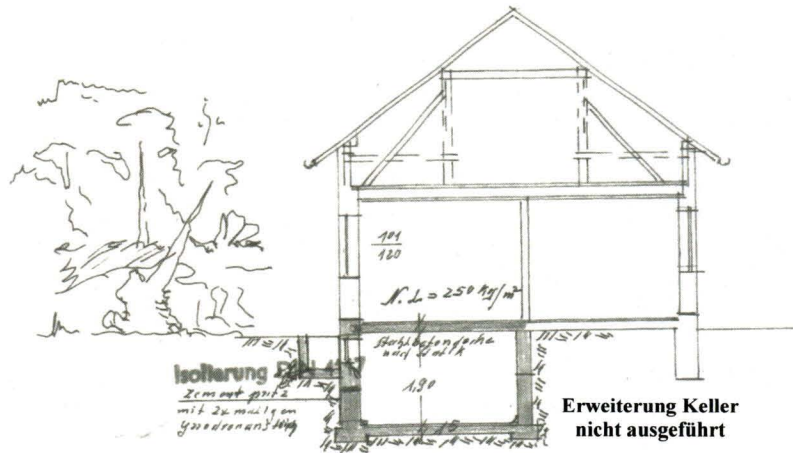 101
120
N. L. = 250 kg/m²
Stahlbetondecke
nach Statik
Isolierung DIN 4117
Zementputz
mit 2x maligen
1,90
15
Erweiterung Keller
nicht ausgeführt